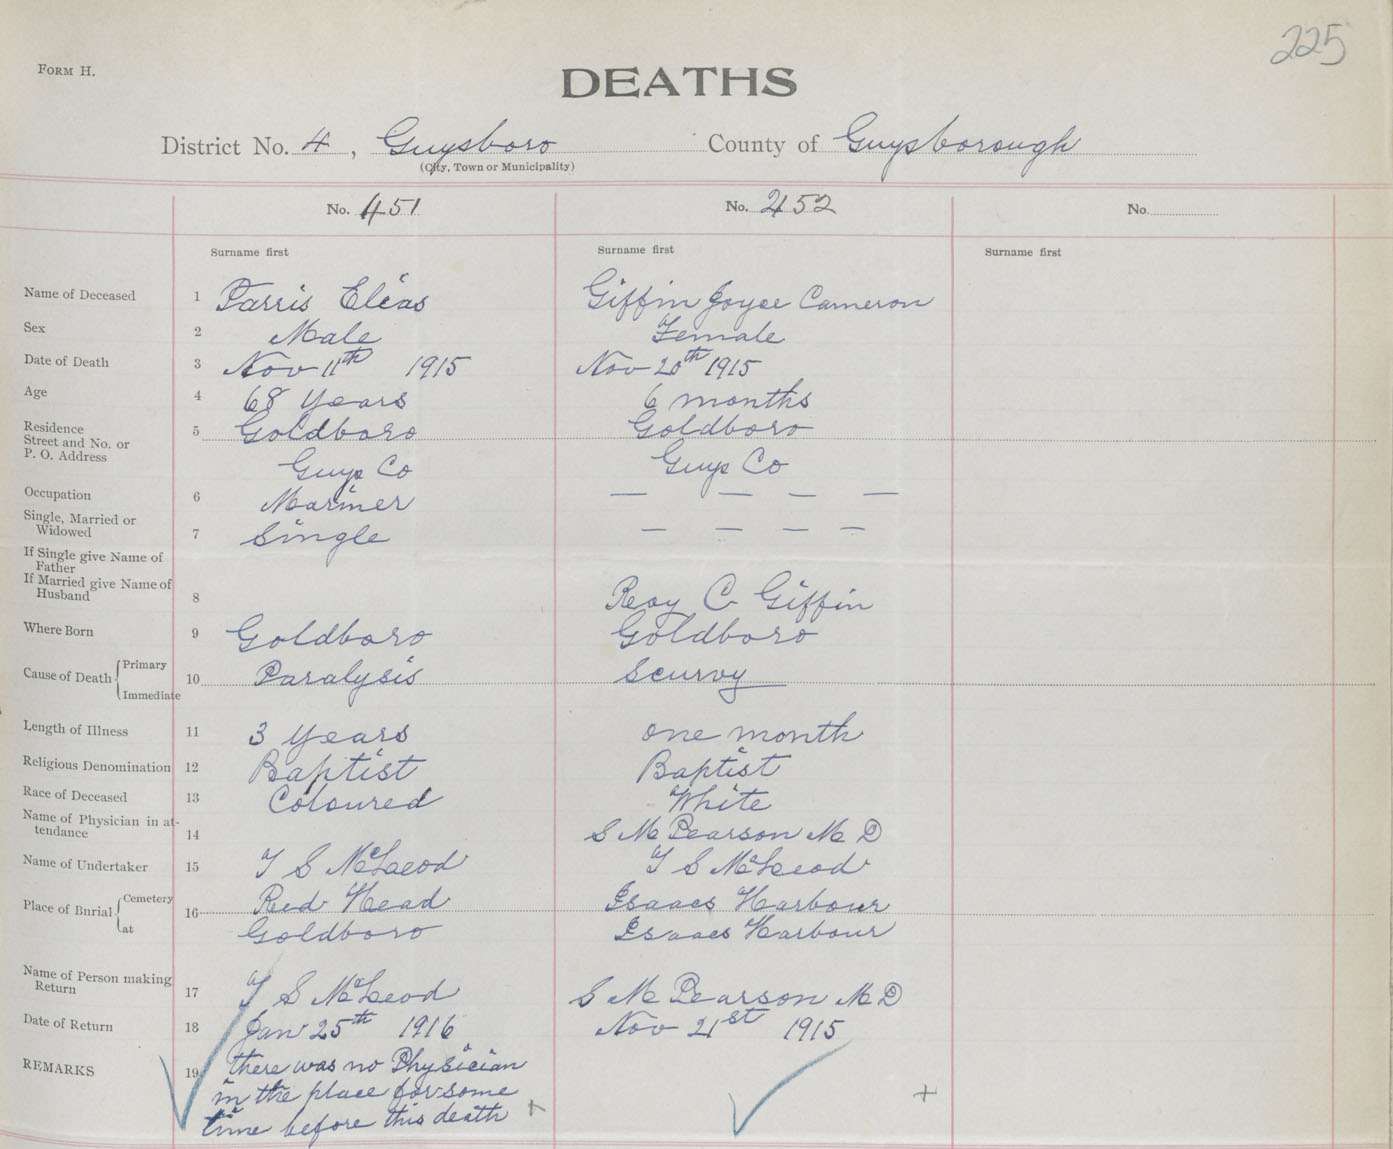 225
FORM H.
DEATHS
District No. 4, Guysboro County of Guysborough
(City, Town or Municipality)
No. 451 No. 452 No.
Surname first Surname first Surname first
Name of Deceased 1 Farris Elias Giffin Joyce Cameron
Sex 2 Male Female
Date of Death 3 Nov 11th 1915 Nov 20th 1915
Age 4 68 years 6 months
Residence
Street and No. or
P. O. Address 5 Goldboro Goldboro
Guys Co Guys Co
Occupation 6 Mariner — — — —
Single, Married or
Widowed 7 Single — — — —
If Single give Name of
Father
If Married give Name of
Husband 8 Roy C Giffin
Where Born 9 Goldboro Goldboro
Cause of Death { Primary 10 Paralysis Scurvy
Immediate
Length of Illness 11 3 years one month
Religious Denomination 12 Baptist Baptist
Race of Deceased 13 Coloured White
Name of Physician in at-
tendance 14 S M Pearson M D
Name of Undertaker 15 T S McLeod T S McLeod
Place of Burial { Cemetery 16 Red Head Isaacs Harbour
at Goldboro Isaacs Harbour
Name of Person making
Return 17 T S McLeod S M Pearson M D
Date of Return 18 Jan 25th 1916 Nov 21st 1915
REMARKS 19 there was no Physician
in the place for some
time before this death